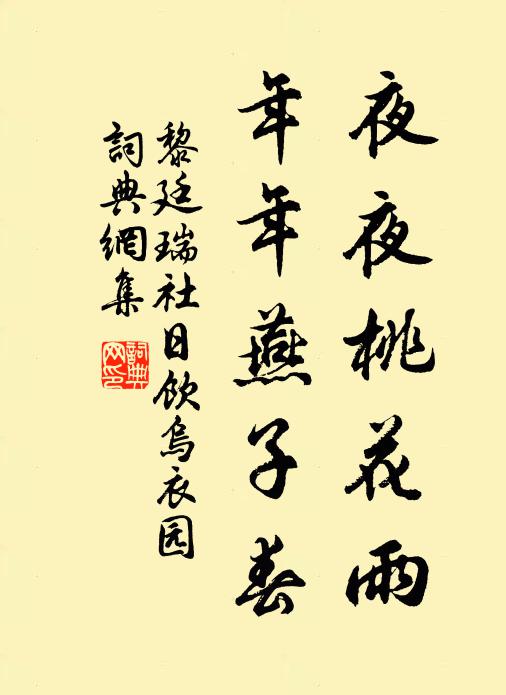 夜夜桃花雨
年年燕子春
黎廷瑞社日飲烏衣园
詞典網集
詞典網印